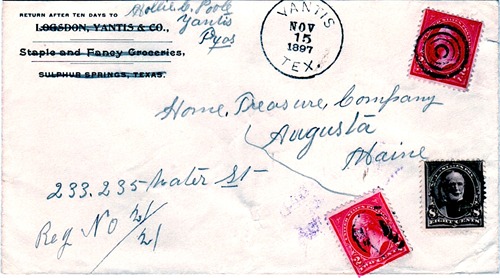 RETURN AFTER TEN DAYS TO
LOGSDON, YANTIS & CO.,
Staple and Fancy Groceries,
SULPHUR SPRINGS, TEXAS.
Mollie D. Poole
Yantis
YANTIS
NOV
15
1897
TEX.
Home Treasure Company
Augusta
Maine
233.235 Water St
Reg No 21/21
EIGHT CENTS